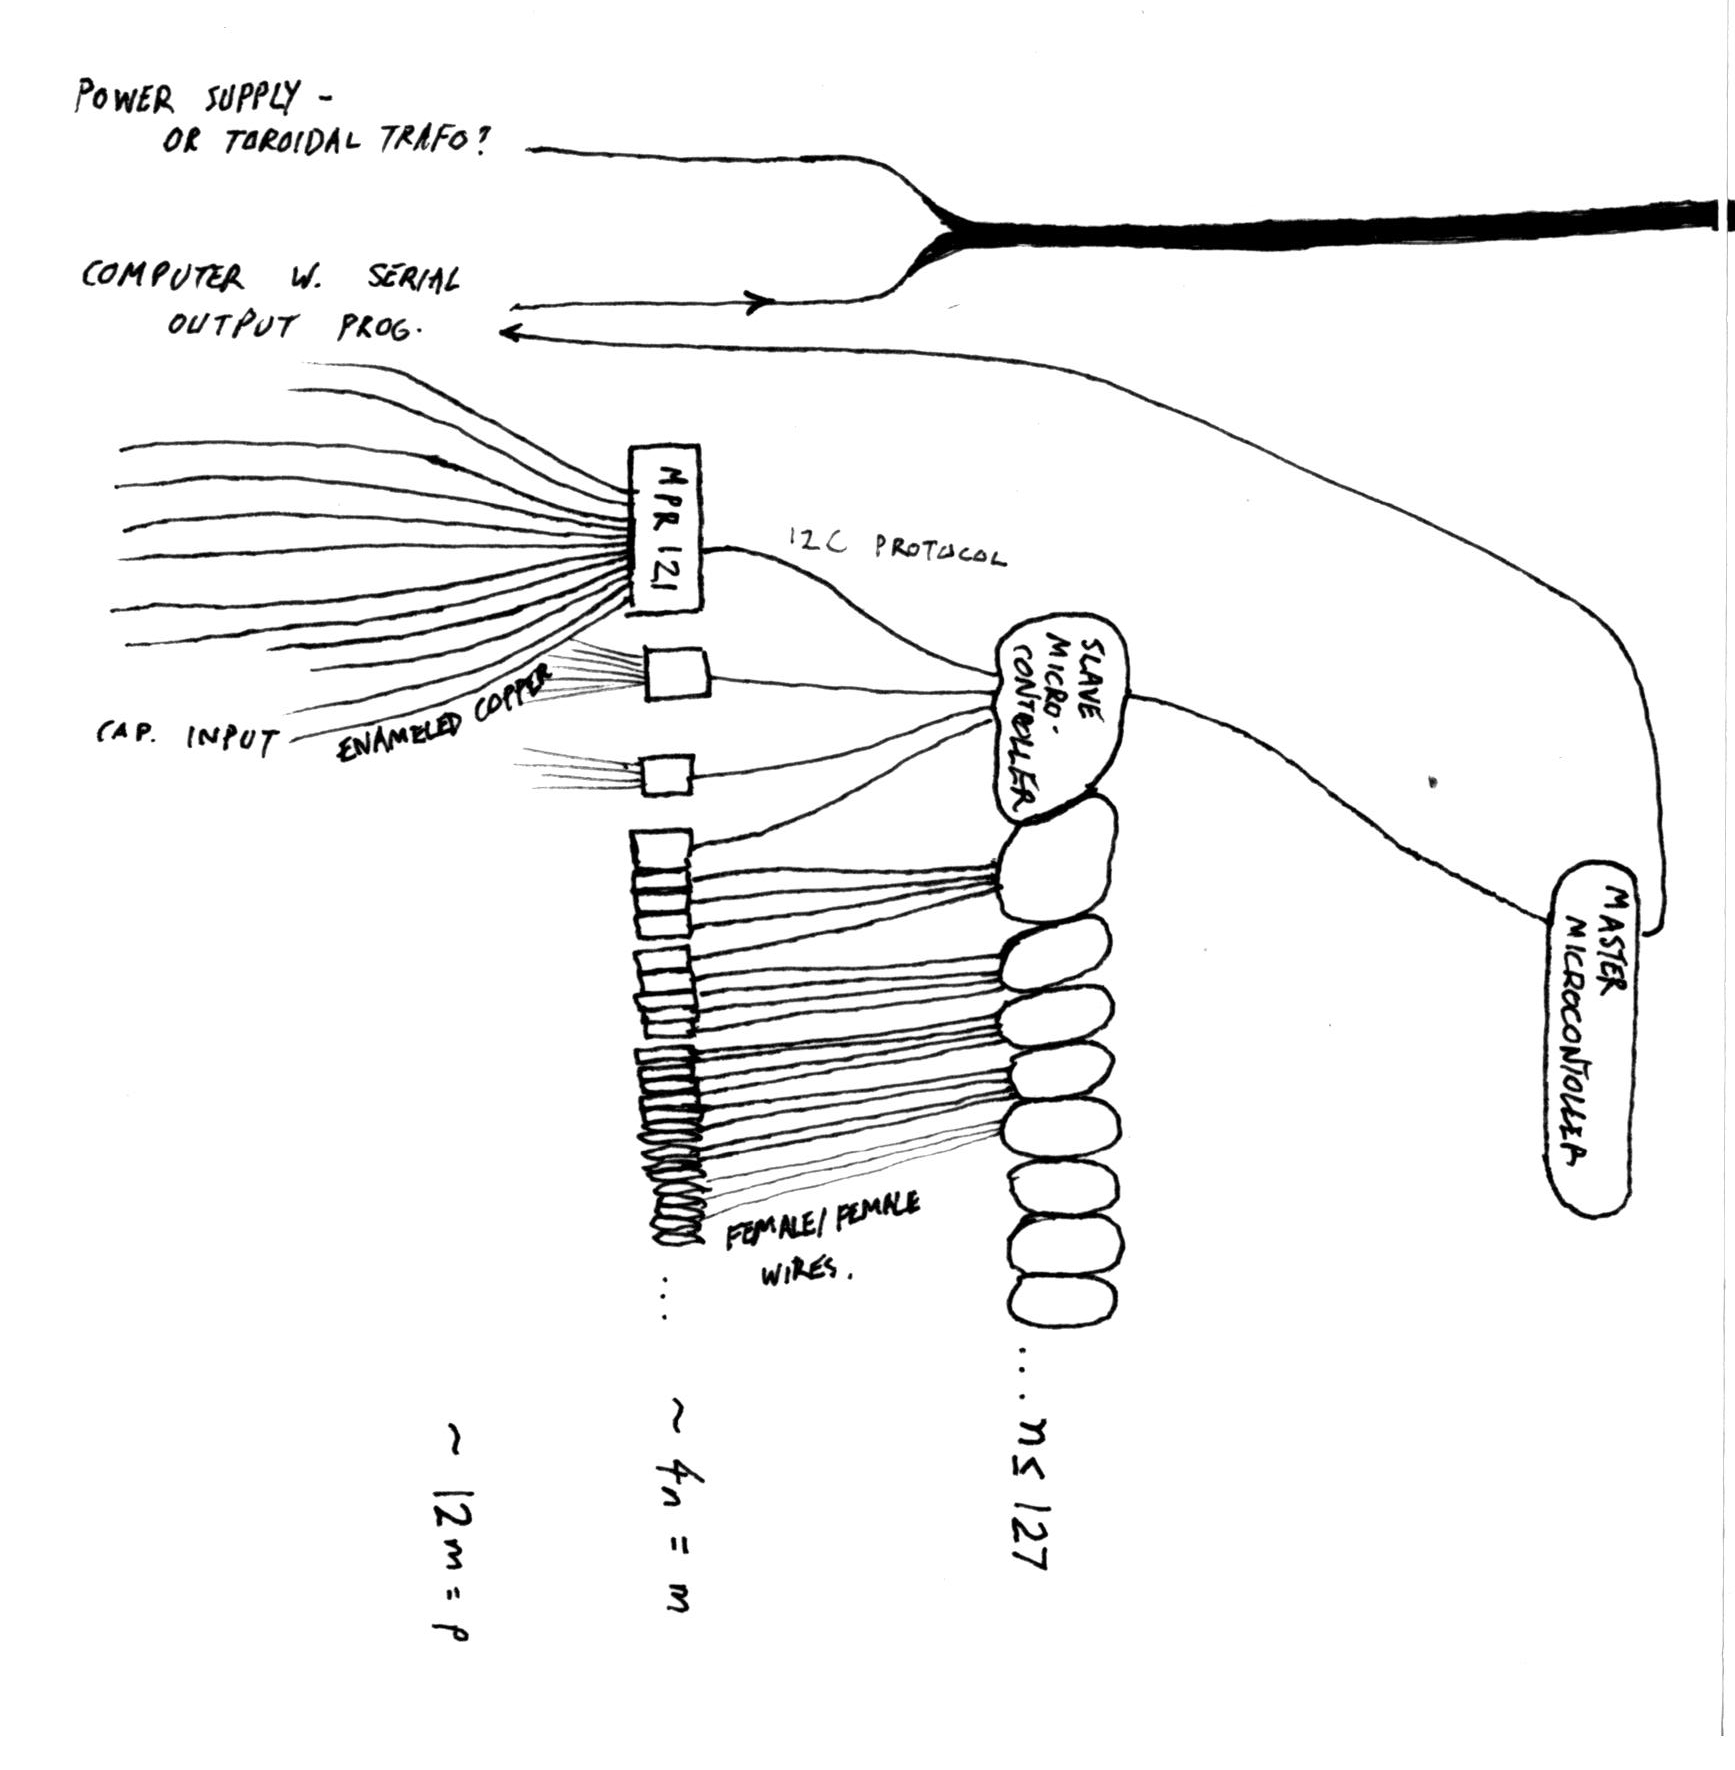 POWER SUPPLY -
OR TOROIDAL TRAFO?
COMPUTER W. SERIAL
OUTPUT PROG.
MPR121
I2C PROTOCOL
SLAVE
MICRO-
CONTROLLER
CAP. INPUT
ENAMELED COPPER
MASTER
MICROCONTOLLER
FEMALE/FEMALE
WIRES.
...
....n ≤ 127
~ 4n = m
~ 12m = p